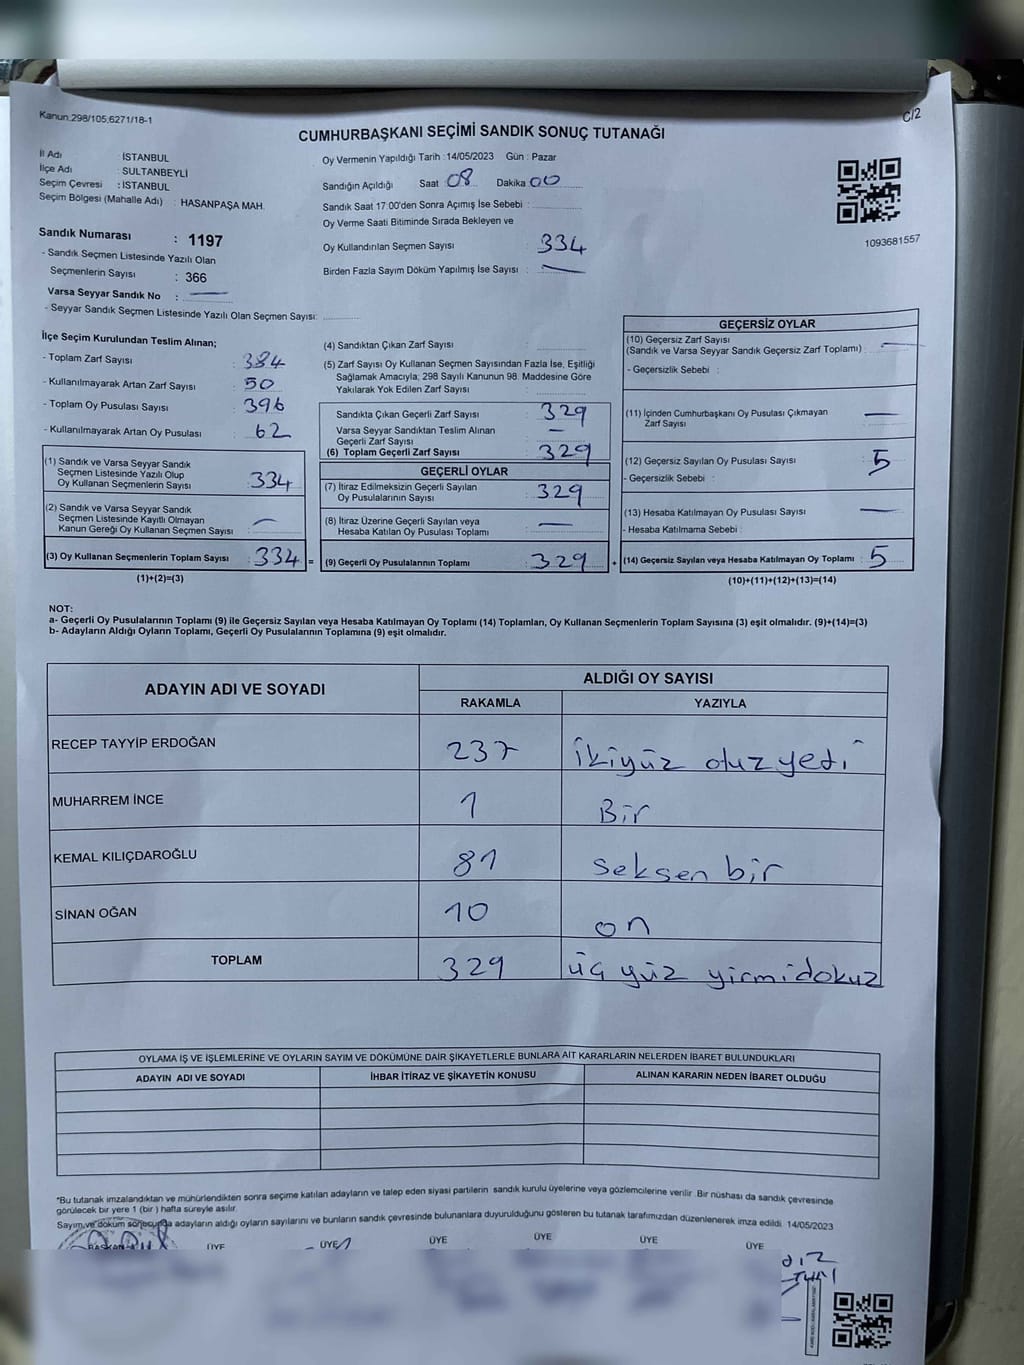 Kanun:298/105;6271/18-1
C/2
CUMHURBAŞKANI SEÇİMİ SANDIK SONUÇ TUTANAĞI
İl Adı : İSTANBUL
İlçe Adı : SULTANBEYLİ
Seçim Çevresi : İSTANBUL
Seçim Bölgesi (Mahalle Adı) : HASANPAŞA MAH.
Sandık Numarası : 1197
- Sandık Seçmen Listesinde Yazılı Olan
Seçmenlerin Sayısı : 366
Varsa Seyyar Sandık No : —
- Seyyar Sandık Seçmen Listesinde Yazılı Olan Seçmen Sayısı:
Oy Vermenin Yapıldığı Tarih : 14/05/2023 Gün : Pazar
Sandığın Açıldığı Saat : 08 Dakika : 00
Sandık Saat 17:00'den Sonra Açımış İse Sebebi :
Oy Verme Saati Bitiminde Sırada Bekleyen ve
Oy Kullandırılan Seçmen Sayısı : 334
Birden Fazla Sayım Döküm Yapılmış İse Sayısı : —
1093681557
İlçe Seçim Kurulundan Teslim Alınan;
- Toplam Zarf Sayısı : 384
- Kullanılmayarak Artan Zarf Sayısı : 50
- Toplam Oy Pusulası Sayısı : 396
- Kullanılmayarak Artan Oy Pusulası : 62
(1) Sandık ve Varsa Seyyar Sandık
Seçmen Listesinde Yazılı Olup
Oy Kullanan Seçmenlerin Sayısı : 334
(2) Sandık ve Varsa Seyyar Sandık
Seçmen Listesinde Kayıtlı Olmayan
Kanun Gereği Oy Kullanan Seçmen Sayısı : —
(3) Oy Kullanan Seçmenlerin Toplam Sayısı : 334 =
(1)+(2)=(3)
(4) Sandıktan Çıkan Zarf Sayısı :
(5) Zarf Sayısı Oy Kullanan Seçmen Sayısından Fazla İse, Eşitliği
Sağlamak Amacıyla; 298 Sayılı Kanunun 98. Maddesine Göre
Yakılarak Yok Edilen Zarf Sayısı :
Sandıkta Çıkan Geçerli Zarf Sayısı : 329
Varsa Seyyar Sandıktan Teslim Alınan
Geçerli Zarf Sayısı : —
(6) Toplam Geçerli Zarf Sayısı : 329
GEÇERLİ OYLAR
(7) İtiraz Edilmeksizin Geçerli Sayılan
Oy Pusulalarının Sayısı : 329
(8) İtiraz Üzerine Geçerli Sayılan veya
Hesaba Katılan Oy Pusulası Toplamı : —
(9) Geçerli Oy Pusulalarının Toplamı : 329 +
GEÇERSİZ OYLAR
(10) Geçersiz Zarf Sayısı
(Sandık ve Varsa Seyyar Sandık Geçersiz Zarf Toplamı) : —
- Geçersizlik Sebebi :
(11) İçinden Cumhurbaşkanı Oy Pusulası Çıkmayan
Zarf Sayısı : —
(12) Geçersiz Sayılan Oy Pusulası Sayısı : 5
- Geçersizlik Sebebi :
(13) Hesaba Katılmayan Oy Pusulası Sayısı : —
- Hesaba Katılmama Sebebi :
(14) Geçersiz Sayılan veya Hesaba Katılmayan Oy Toplamı : 5
(10)+(11)+(12)+(13)=(14)
NOT:
a- Geçerli Oy Pusulalarının Toplamı (9) ile Geçersiz Sayılan veya Hesaba Katılmayan Oy Toplamı (14) Toplamları, Oy Kullanan Seçmenlerin Toplam Sayısına (3) eşit olmalıdır. (9)+(14)=(3)
b- Adayların Aldığı Oyların Toplamı, Geçerli Oy Pusulalarının Toplamına (9) eşit olmalıdır.
ADAYIN ADI VE SOYADI ALDIĞI OY SAYISI
RAKAMLA YAZIYLA
RECEP TAYYİP ERDOĞAN 237 ikiyüz otuz yedi
MUHARREM İNCE 1 Bir
KEMAL KILIÇDAROĞLU 81 seksen bir
SİNAN OĞAN 10 on
TOPLAM 329 üç yüz yirmidokuz
OYLAMA İŞ VE İŞLEMLERİNE VE OYLARIN SAYIM VE DÖKÜMÜNE DAİR ŞİKAYETLERLE BUNLARA AİT KARARLARIN NELERDEN İBARET BULUNDUKLARI
ADAYIN ADI VE SOYADI İHBAR İTİRAZ VE ŞİKAYETİN KONUSU ALINAN KARARIN NEDEN İBARET OLDUĞU
*Bu tutanak imzalandıktan ve mühürlendikten sonra seçime katılan adayların ve talep eden siyasi partilerin sandık kurulu üyelerine veya gözlemcilerine verilir. Bir nüshası da sandık çevresinde
görülecek bir yere 1 (bir) hafta süreyle asılır.
Sayım ve döküm sonucunda adayların aldığı oyların sayılarını ve bunların sandık çevresinde bulunanlara duyurulduğunu gösteren bu tutanak tarafımızdan düzenlenerek imza edildi. 14/05/2023
BAŞKAN ÜYE ÜYE ÜYE ÜYE ÜYE ÜYE